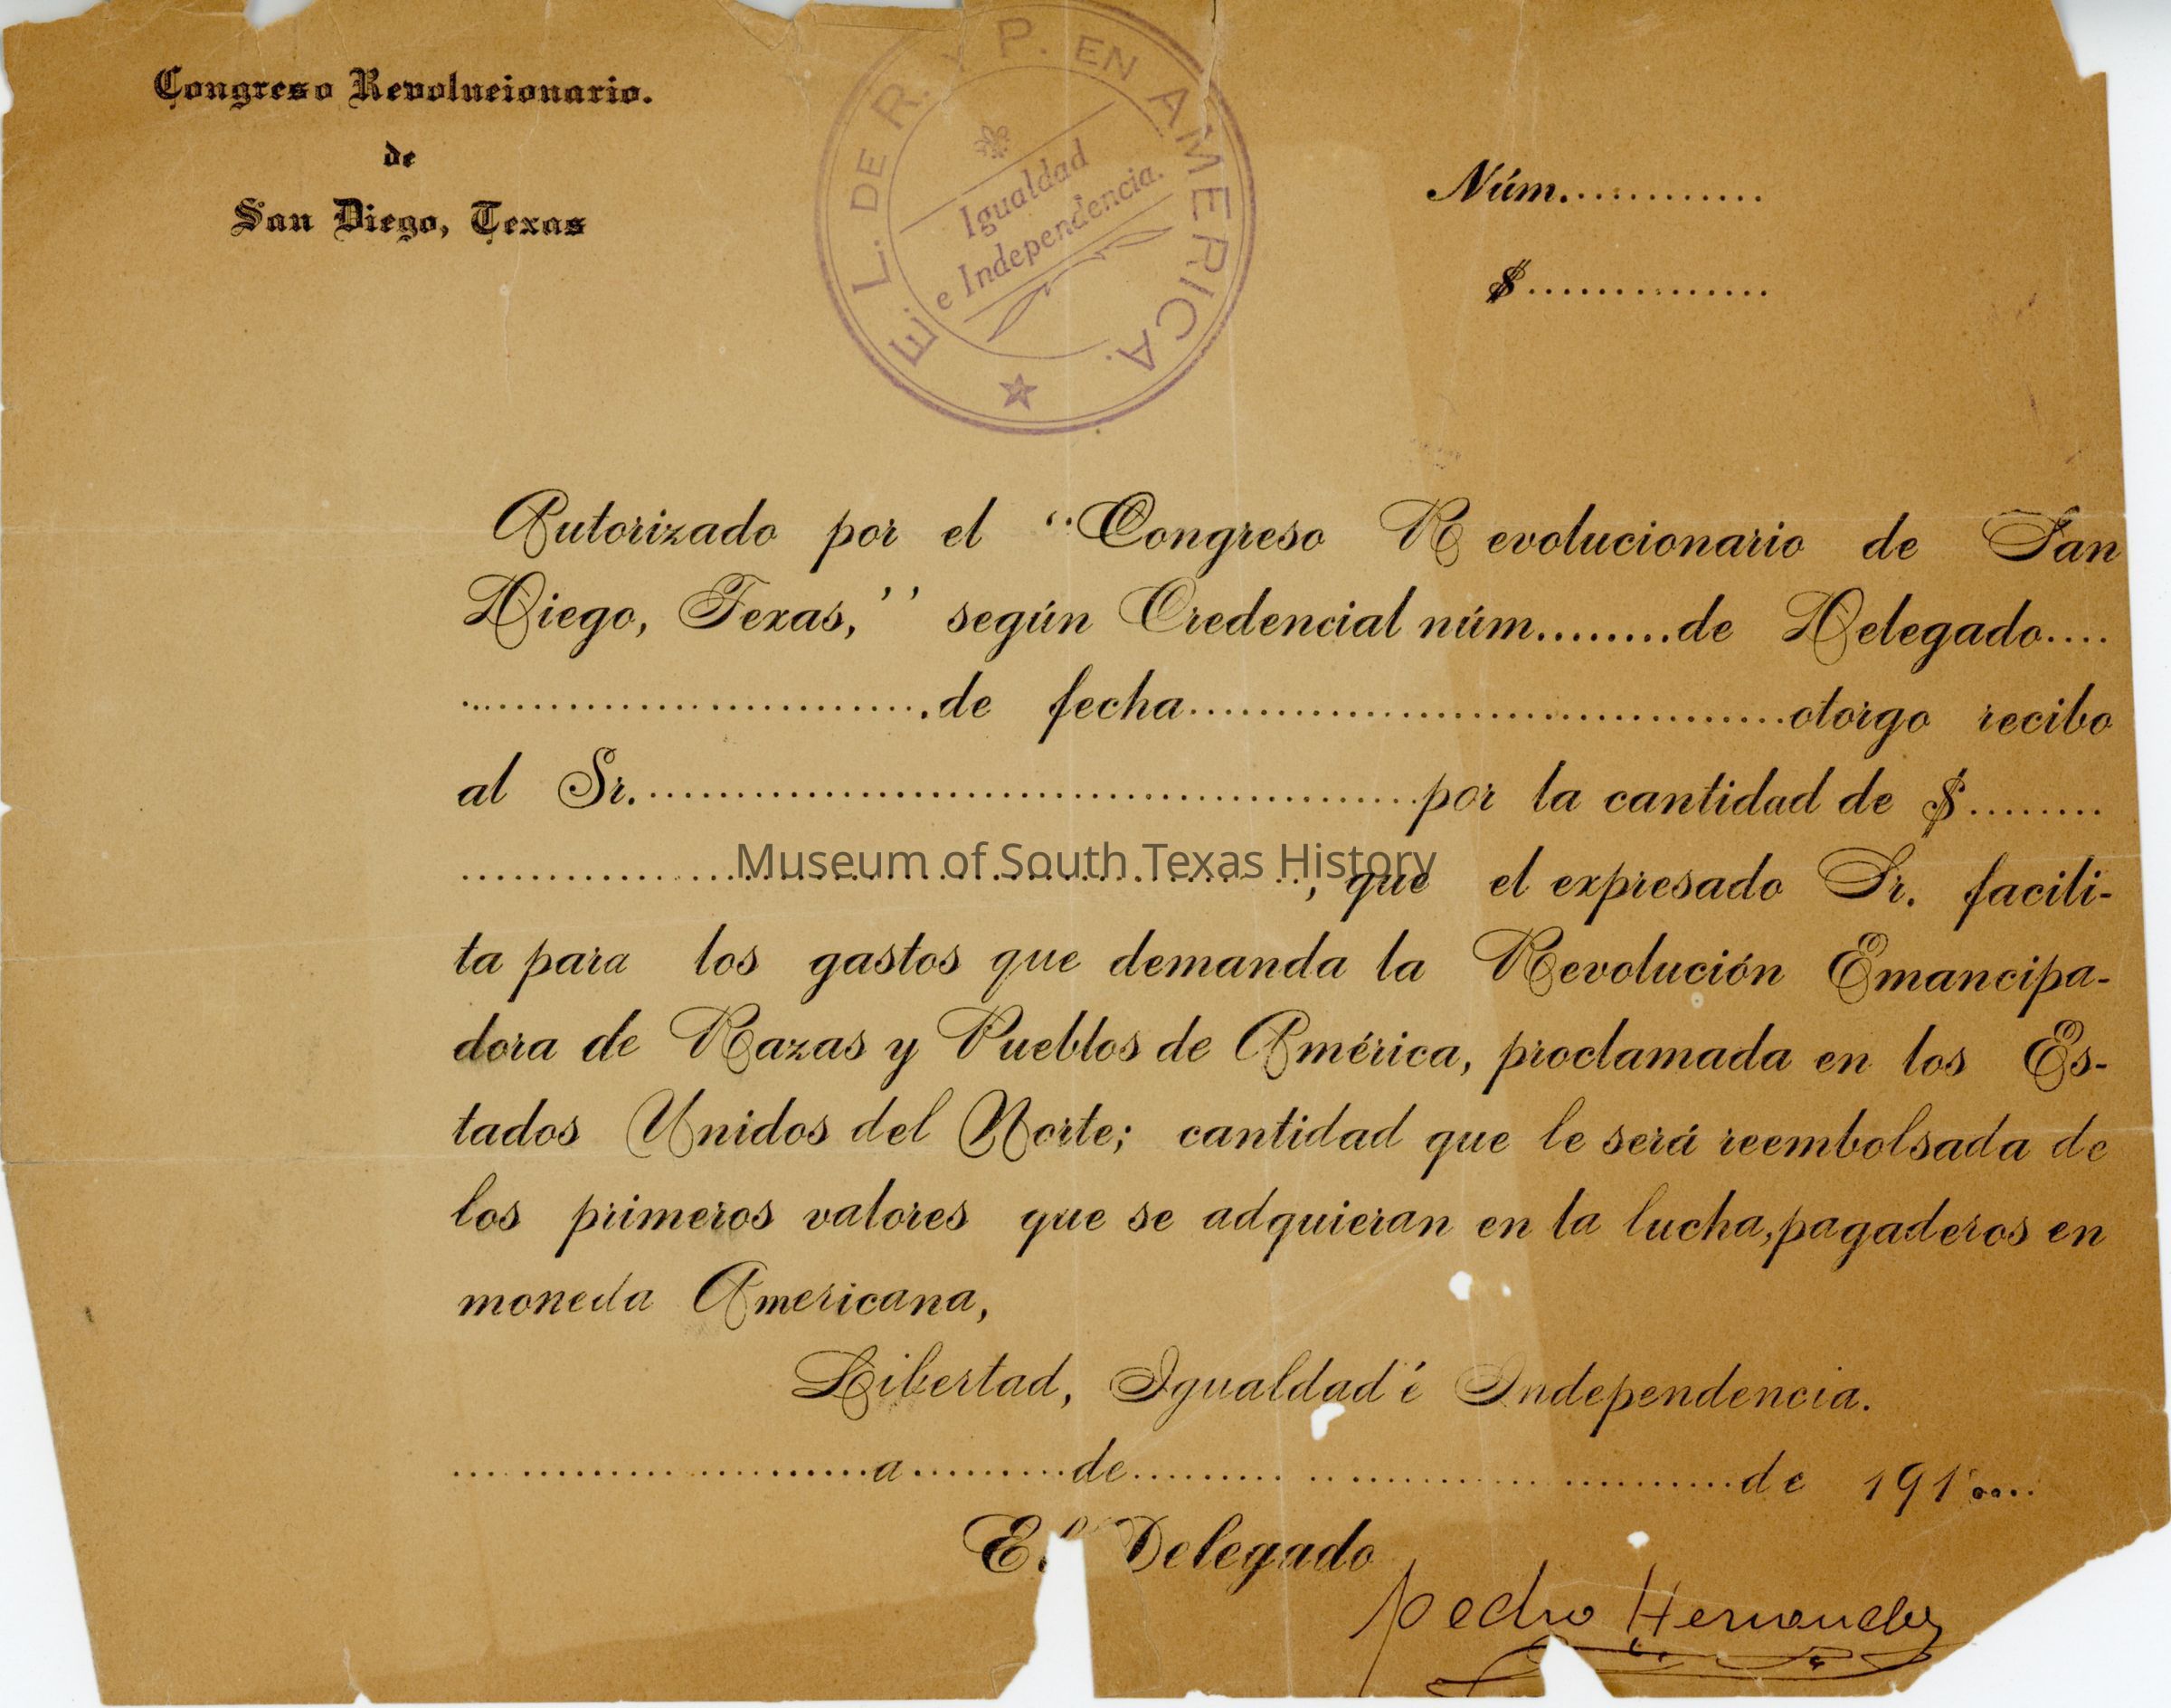 Congreso Revolucionario.
de
San Diego, Texas
E. L. DE R. Y P. EN AMERICA.
Igualdad
e Independencia.
Núm.............
$..............
Autorizado por el "Congreso Revolucionario de San
Diego, Texas,'' según Credencial núm.........de Delegado....
............................de fecha..................................otorgo recibo
al Sr.............................................por la cantidad de $........
................................................, que el expresado Sr. facili-
ta para los gastos que demanda la Revolución Emancipa-
dora de Razas y Pueblos de América, proclamada en los Es-
tados Unidos del Norte; cantidad que le será reembolsada de
los primeros valores que se adquieran en la lucha, pagaderos en
moneda Americana,
Libertad, Igualdad é Independencia.
........................a.........de...................................de 191....
El Delegado
Pedro Hernandez
Museum of South Texas History